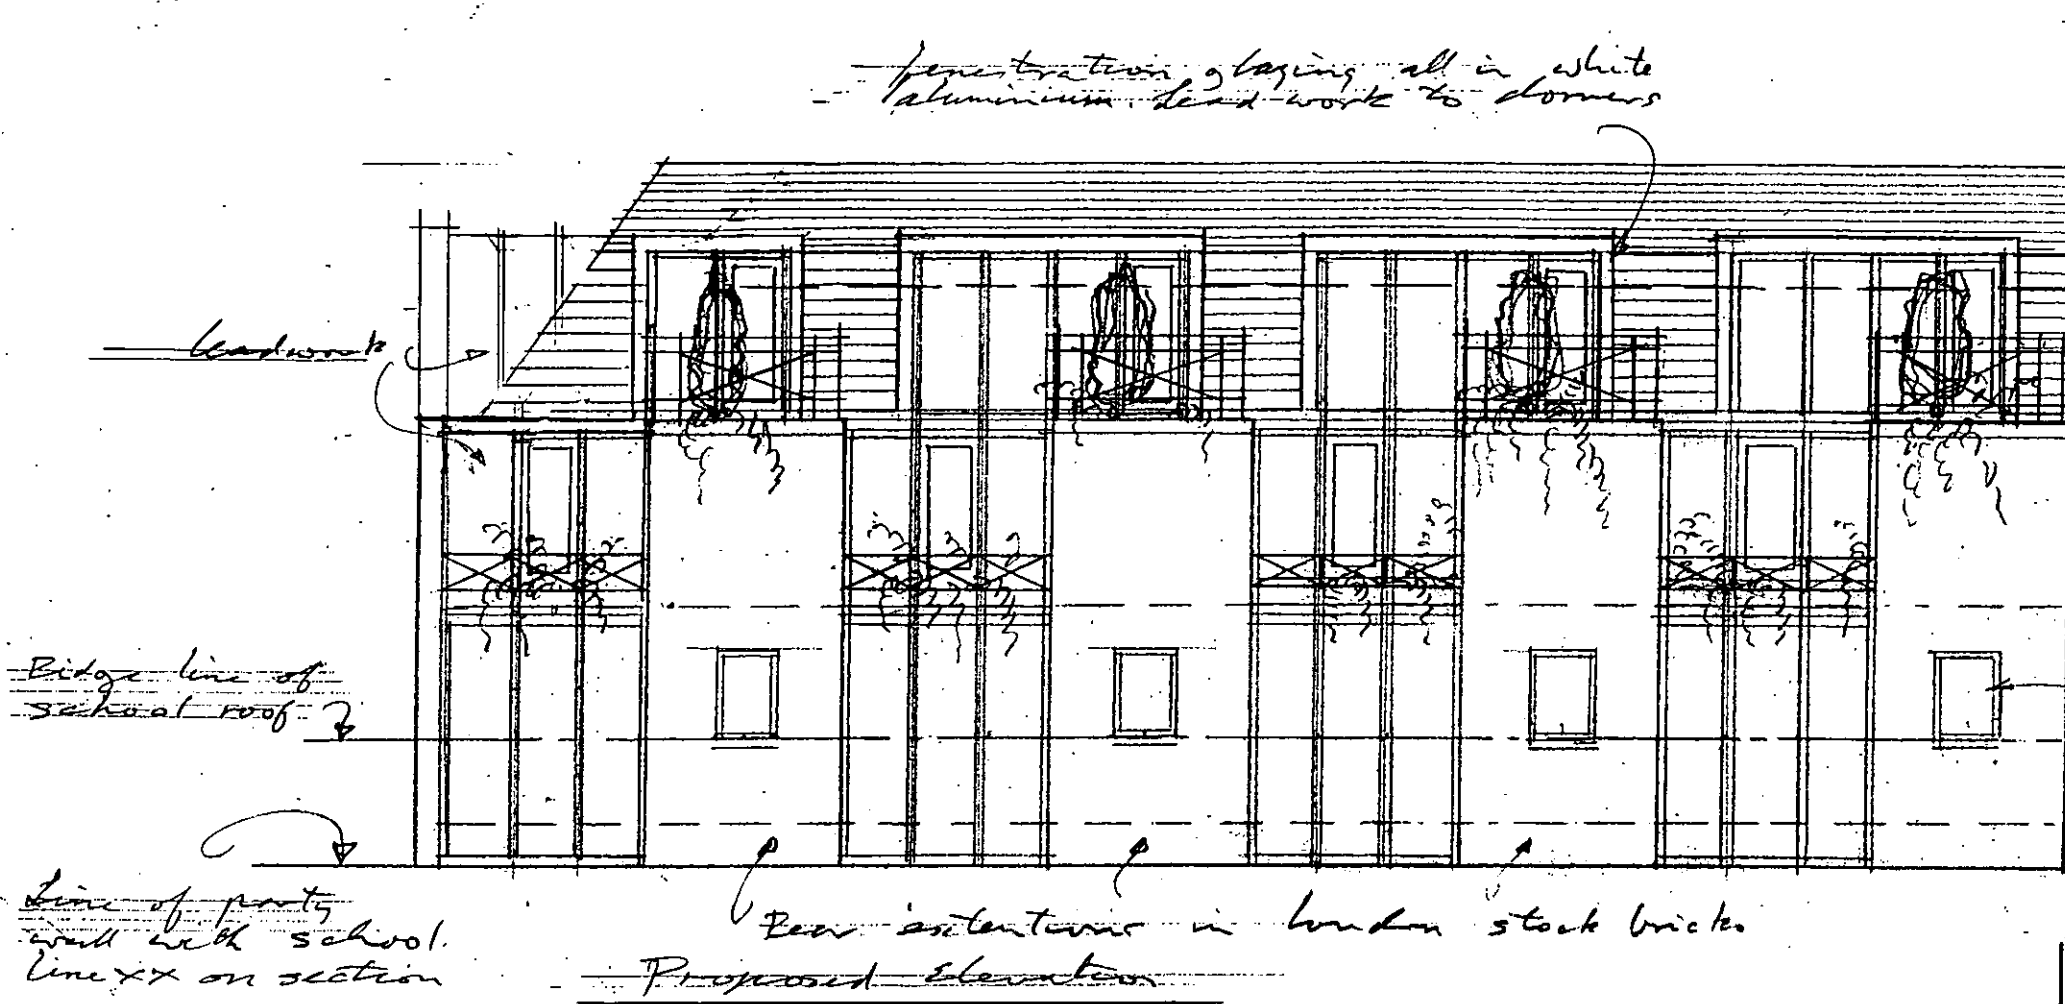 fenestration glazing all in white
aluminium. Lead work to dorners
leadwork
Ridge line of
school roof
Line of party
wall with school.
line xx on section
Rear extentions in london stock bricks
Proposed Elevation